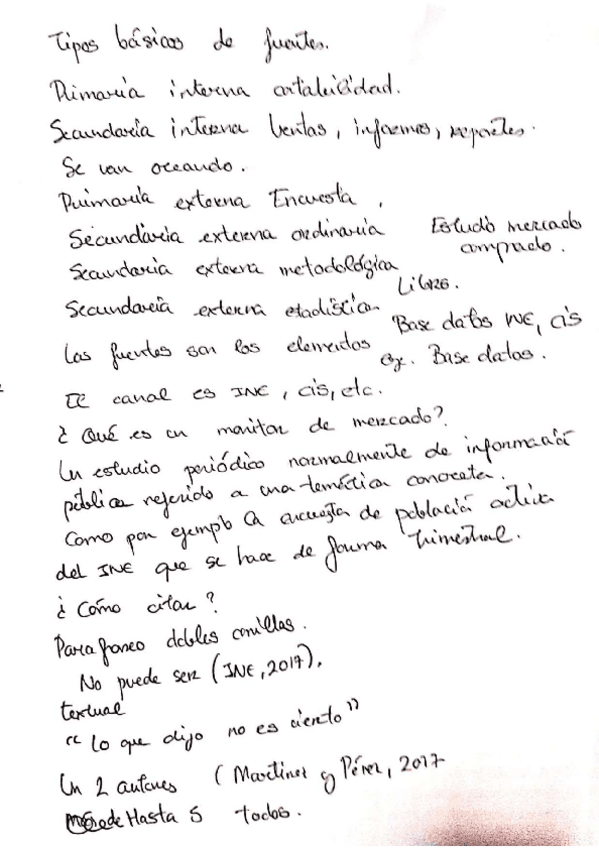 Tipos básicos de fuentes.
Primaria interna contabilidad.
Secundaria interna Ventas, informes, reportes.
Se van creando.
Primaria externa Encuesta.
Secundaria externa ordinaria Estudio mercado comprado.
Secundaria externa metodológica Libros.
Secundaria externa estadística Base datos INE, cis
Las fuentes son los elementos ej. Base datos.
El canal es INE, cis, etc.
¿Qué es un monitor de mercado?
Un estudio periódico normalmente de información
pública referido a una temática concreta.
Como por ejemplo la encuesta de población activa
del INE que se hace de forma trimestral.
¿Cómo citar?
Parafraseo dobles comillas.
No puede ser (INE, 2017).
textual
"lo que dijo no es cierto"
Un 2 autores (Martinez y Pérez, 2017
de Hasta 5 todos.